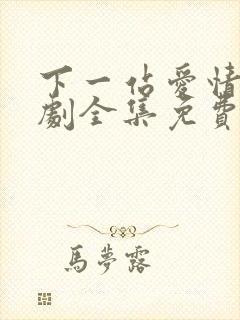 下一佔愛情
劇全集免費
馬夢露